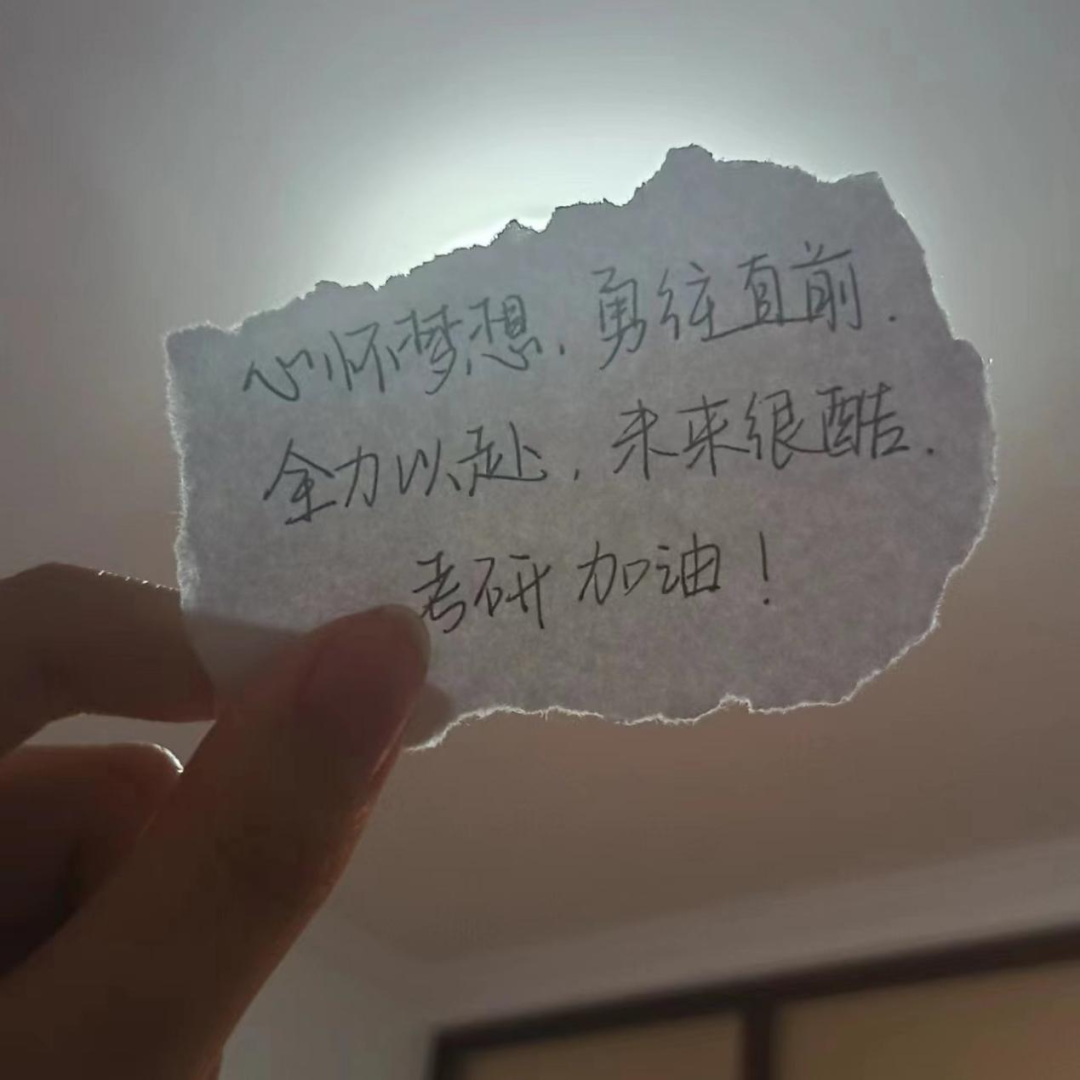 心怀梦想,勇往直前.
全力以赴,未来很酷.
考研加油!